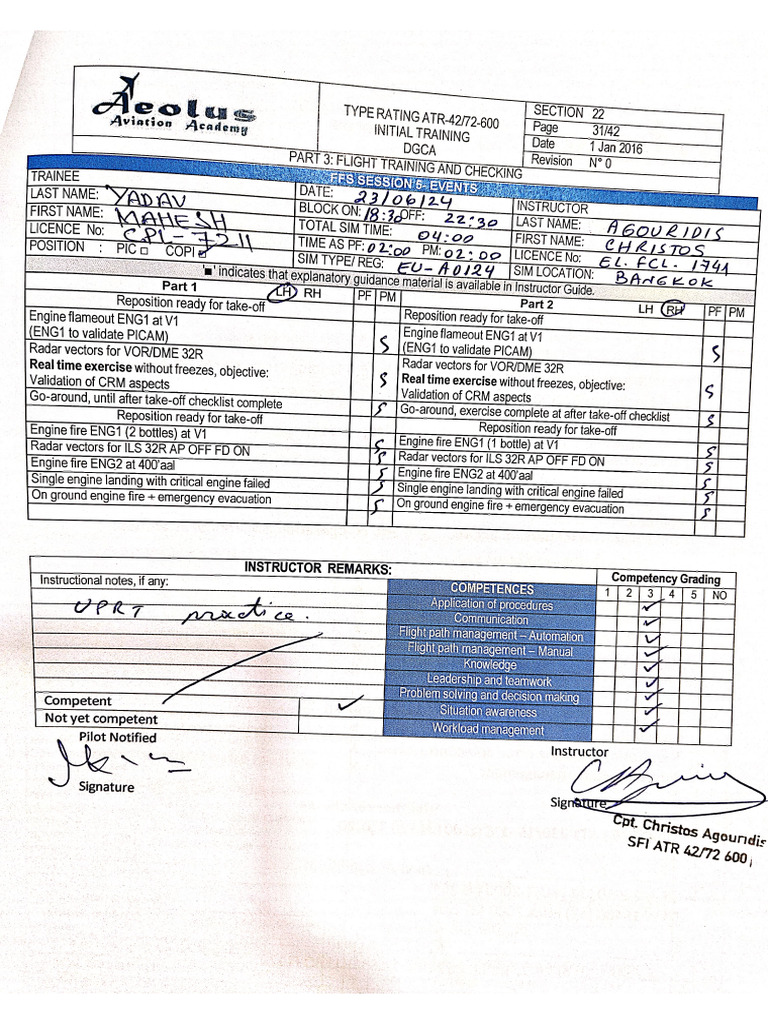 Aeolus
Aviation Academy
TYPE RATING ATR-42/72-600
INITIAL TRAINING
DGCA
SECTION 22
Page 31/42
Date 1 Jan 2016
Revision N° 0
PART 3: FLIGHT TRAINING AND CHECKING
FFS SESSION 6- EVENTS
TRAINEE
LAST NAME: YADAV
FIRST NAME: MAHESH
LICENCE No: CPL-7211
POSITION : PIC □ COPI
DATE: 23/06/24
BLOCK ON: 18:30 OFF: 22:30
TOTAL SIM TIME: 04:00
TIME AS PF: 02:00 PM: 02:00
SIM TYPE/ REG: EU-A0124
INSTRUCTOR
LAST NAME: AGOURIDIS
FIRST NAME: CHRISTOS
LICENCE No: EL.FCL.1741
SIM LOCATION: BANGKOK
'■' indicates that explanatory guidance material is available in Instructor Guide.
Part 1 LH RH PF PM
Reposition ready for take-off
Engine flameout ENG1 at V1
(ENG1 to validate PICAM) S
Radar vectors for VOR/DME 32R
Real time exercise without freezes, objective: S
Validation of CRM aspects
Go-around, until after take-off checklist complete S
Reposition ready for take-off
Engine fire ENG1 (2 bottles) at V1 S
Radar vectors for ILS 32R AP OFF FD ON S
Engine fire ENG2 at 400'aal S
Single engine landing with critical engine failed S
On ground engine fire + emergency evacuation S
Part 2 LH RH PF PM
Reposition ready for take-off
Engine flameout ENG1 at V1
(ENG1 to validate PICAM) S
Radar vectors for VOR/DME 32R
Real time exercise without freezes, objective: S
Validation of CRM aspects
Go-around, exercise complete at after take-off checklist S
Reposition ready for take-off
Engine fire ENG1 (1 bottle) at V1 S
Radar vectors for ILS 32R AP OFF FD ON S
Engine fire ENG2 at 400'aal S
Single engine landing with critical engine failed S
On ground engine fire + emergency evacuation S
INSTRUCTOR REMARKS:
Instructional notes, if any:
UPRT practice.
Competent ✓
Not yet competent
COMPETENCES
Competency Grading
1 2 3 4 5 NO
Application of procedures ✓
Communication ✓
Flight path management – Automation ✓
Flight path management – Manual ✓
Knowledge ✓
Leadership and teamwork ✓
Problem solving and decision making ✓
Situation awareness ✓
Workload management ✓
Pilot Notified
Signature
Instructor
Signature
Cpt. Christos Agouridis
SFI ATR 42/72 600